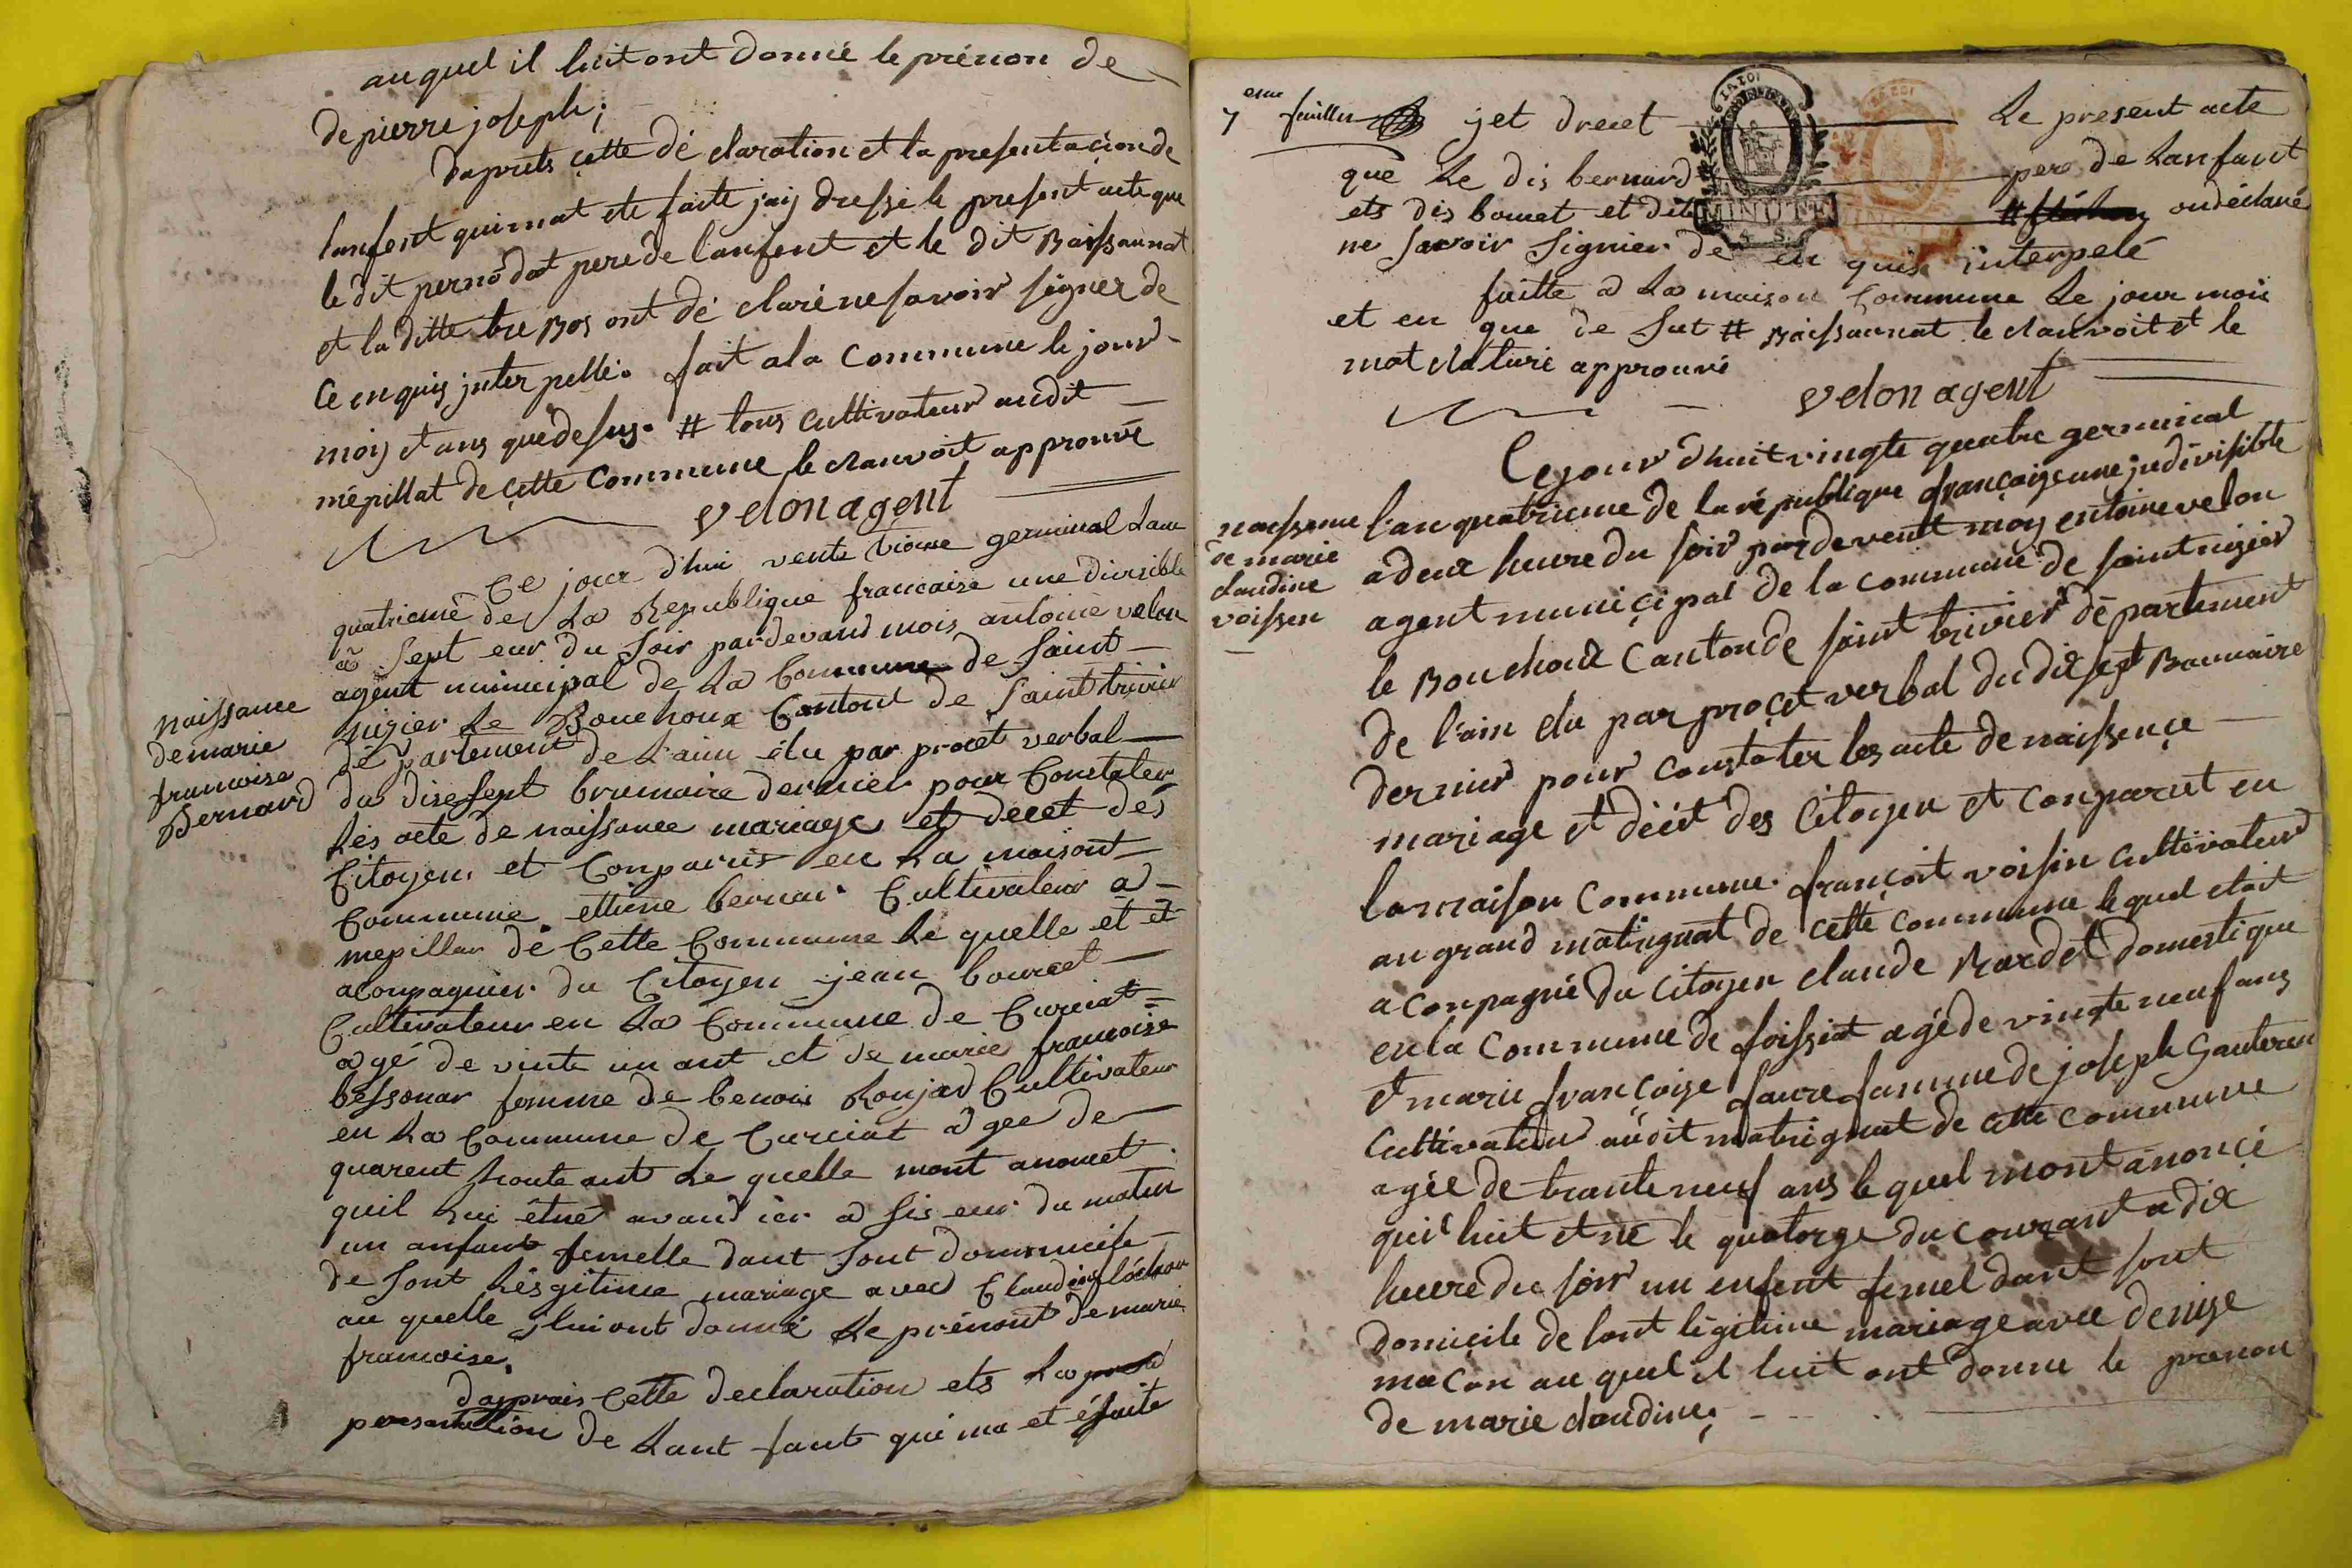 auquel il luit ont donné le prénon de
de pierre joseph;
daprets cette dé claration et la presentaçion de
lanfent quimat ete faite jaij dressé le present acte que
le dit pernodat pere de lanfent et le dit Boissannat
et la ditte tre Bos ont dé claré ne savoir signer de
ce enquis jnter pellé. fait a la commune le jour
moij et ans que de sus. # tous cultivateur audit
mépillat de cette commune le clauvoit approuvé
velon agent
Ce jour d'hui vente troise germinal Lan
quatrieme de La Republique francaise une divisible
a sept eur du soir pardevand mois antoine velon
agent municipal de La Commune de saint
nizier Le Bouchoux Canton de Saint trivier
dé partement de L'ain élu par procet verbal
du disesept brumaire dernier pour Constater
Les acte de naissance mariage et decet des
Citoyen et Conparus en La maisont
Commune ettiene bernar Cultivateur a
mepillar de Cette Commune Le quelle et ét
aconpagnier du Citoyen jean bouret
Cultivateur en La Commune de Curciat
agé de vinte un ant et de marie francoise
bessonar femme de benois Roujard Cultivateur
en La Commune de Curciat agee de
quarent houte ant Le quelle mont anoncet
quil Lui étné avand ier a sis eur du matin
un anfant femelle dant sont dommicile
de sont Lésgitime mariage avec Claudine fléchon
au quelle jluiont donné Le prénont de marie
francoise.
daprrais Cette declaration ets La
presentation de Lant fant qui ma et éfaite
naissance
de marie
francoise
Bernard
7 eme feuillet jet drecet Le present acte
que Le dis bernard pere de Lanfant
ets dis bouret et dite # ondéclaré
ne savoir signier de en quis interpelé
faitte a La maison Commune Le jour mois
et en que de sut # Boissannat le clauvoit et le
mot elaturé approuvé
velon agent
Ce jour d'huit vingte quatre germinal
l'an quatrieme de la république françoise une jndivisible
a deux heure du soir pardevent moy entoine velon
agent muniçipal de la commune de saint nizier
le Bouchoux Canton de saint trivier dé partement
de l'ain elu par proçet verbal du dix sept Brumaire
dernier pour constater les acte de naissençe
mariage et décet des Citoyen et conparut en
la maison commune. françoit voisin cultivateur
au grand matrignat de cette commune lequel etait
aconpagné du Citoyen claude Bardet domestique
en la commune de foissiat agé de vingte neuf ans
et marie françoise faure famme de joseph Gauteren
Cultivateur audit matrignat de cette commune
agée de trante neuf ans lequel mont anonçé
quil luit et né le quatorze du courant a dix
heure du soir un enfent femel dant sont
domiçile de sont légitime mariage avec denise
macon au quel il luit ont donne le prenon
de marie claudine;
naissence
de marie
claudine
voissen
MINUTE